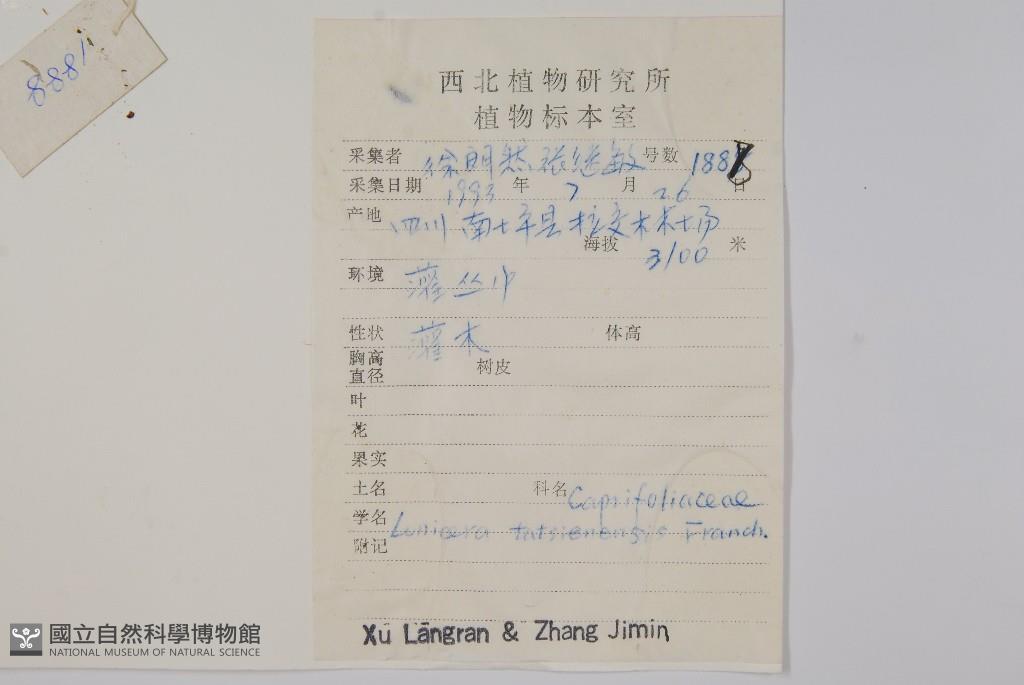 1888
西北植物研究所
植物标本室
采集者 徐朗然 张继敏 号数 188
采集日期 1993 年 7 月 26 日
产地 四川 南坪县
海拔 3100 米
环境 灌丛中
性状 灌木 体高
胸高直径 树皮
叶
花
果实
土名 科名 Caprifoliaceae
学名 Lonicera tatsienensis Franch.
附记
Xu Langran & Zhang Jimin
國立自然科學博物館
NATIONAL MUSEUM OF NATURAL SCIENCE